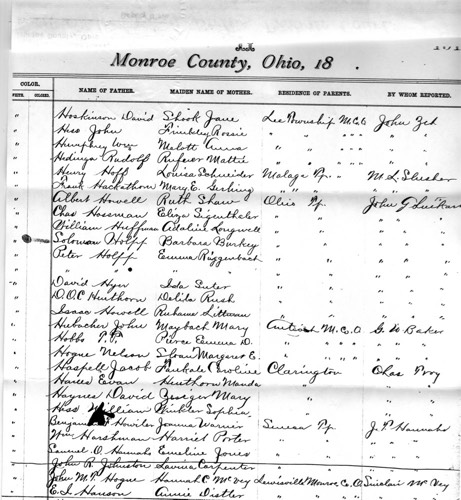 Monroe County, Ohio, 18
COLOR.
WHITE. COLORED. NAME OF FATHER. MAIDEN NAME OF MOTHER. RESIDENCE OF PARENTS. BY WHOM REPORTED.
" Hoskinson David Shook Jane Lee Township M.C.O John
" Hiss John Rosie " " " " "
" Humphrey Wm Melott Anna " " " " "
" Rudolf Rufener Mattie " " "
" Henry Hoff Louisa Schneider Malaga Tp. M. L. Slusher
" Frank Hackathorn Mary E. " " "
" Albert Howell Ruth Shaw Ohio Tp. John G
" Chas Hossman Eliza Sigenthaler " " "
" William Huffman Adaline Longwell " " "
" Solomon Holpp Barbara Burkey " " "
" Peter Holpp Emma Riggenbach " " "
" " " " " "
" David Hyer Ida Suter " " "
" D.O.C Henthorn Delila Rush " " "
" Isaac Howell Ruhama Littman " " "
" Hubacher John Maybach Mary M.C.O G. W Baker
" Hobbs T.P. Pierce Emma D. " " " "
" Hogue Nelson Sloan Margaret E. " " " "
" Haspell Jacob Caroline Clarington Chas Pory
" Haines Evan Henthorn Manda " "
" Haynes David Mary " "
" Hiss William Winkler Sophia " "
" Benjamin Howiler Joanna Warner Seneca Tp. J. P. Hannahs
" Wm Harshman Harriet Porter " " "
" Samuel O Hannahs Emeline Jones " " "
" John R Johnston Lavina Carpenter " " "
" John M. P. Hogue Hannah C McVey Lewisville Monroe Co. O Sinclair McVey
" E. I. Hanson Annie Distler " " " " "